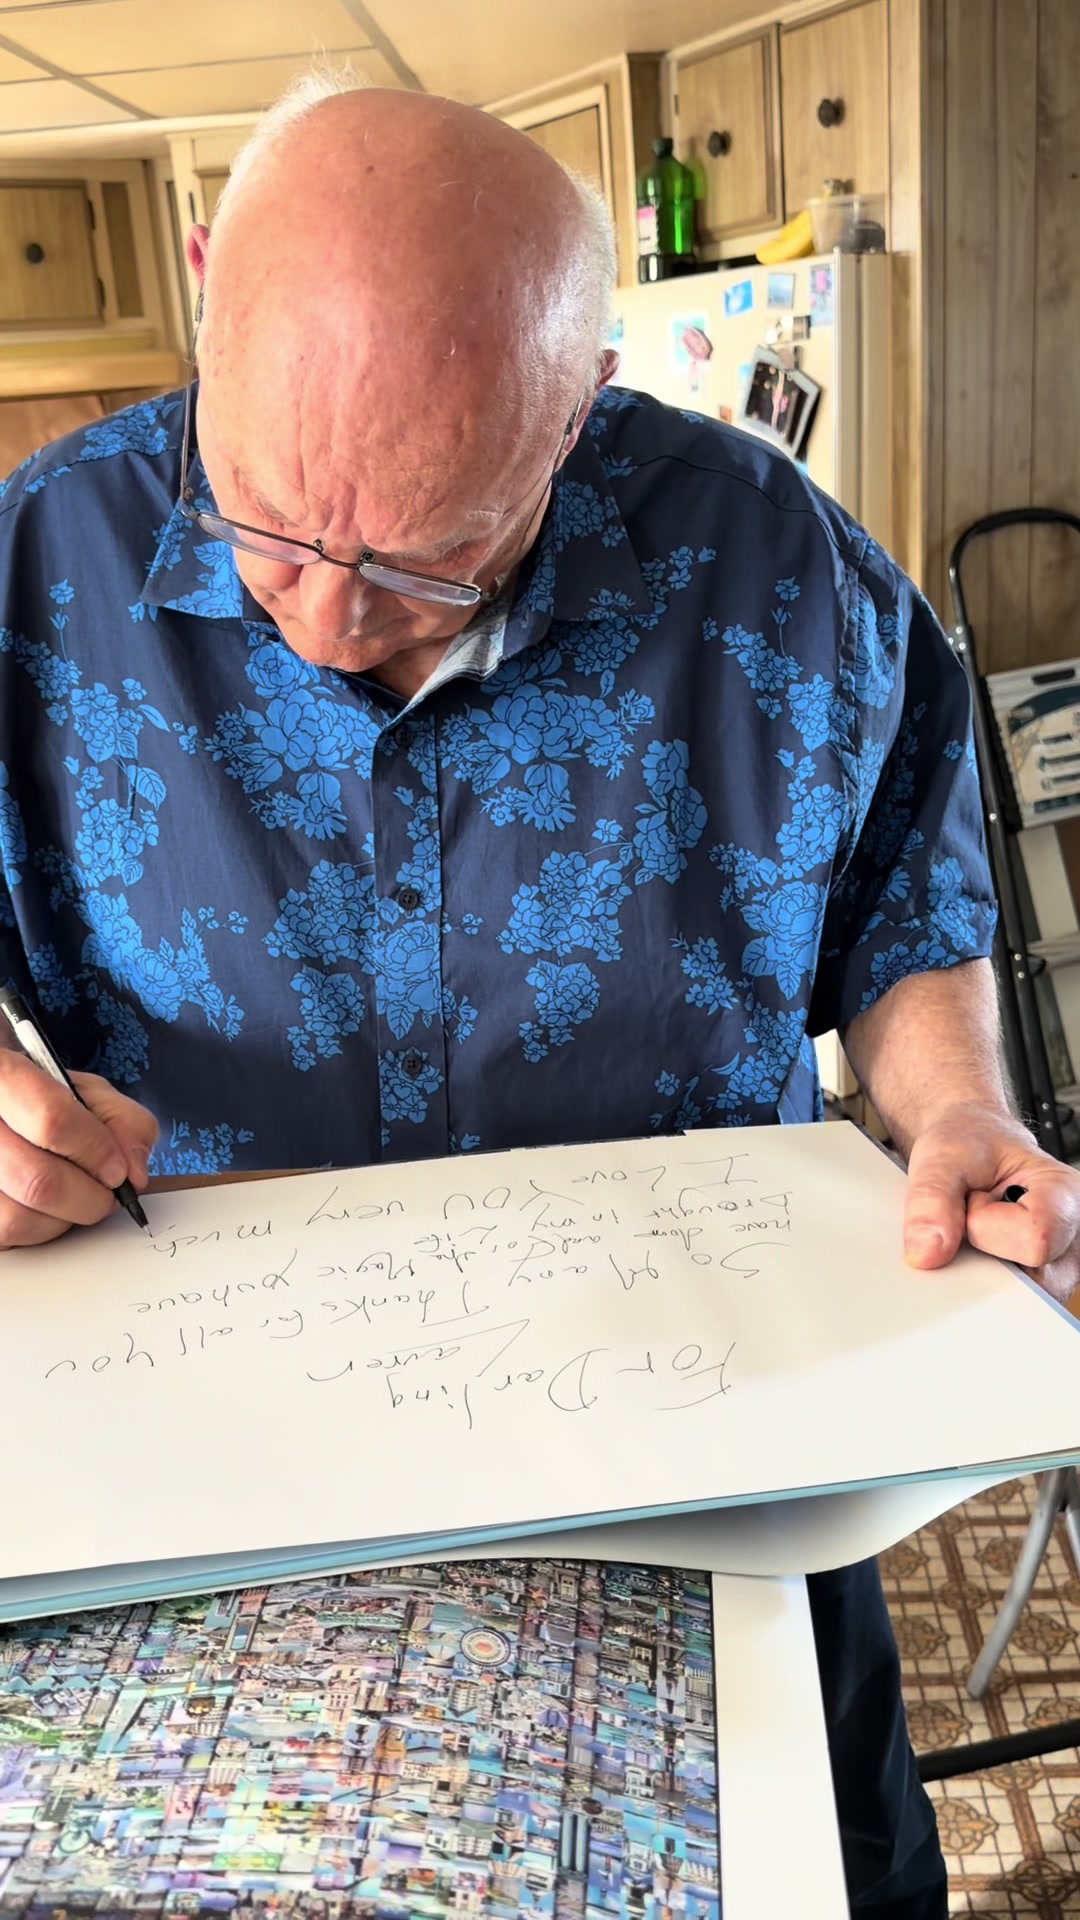 For Darling
Lauren
Thanks for all you
have done and for the Magic you have
brought in my Life
I Love YOU very much